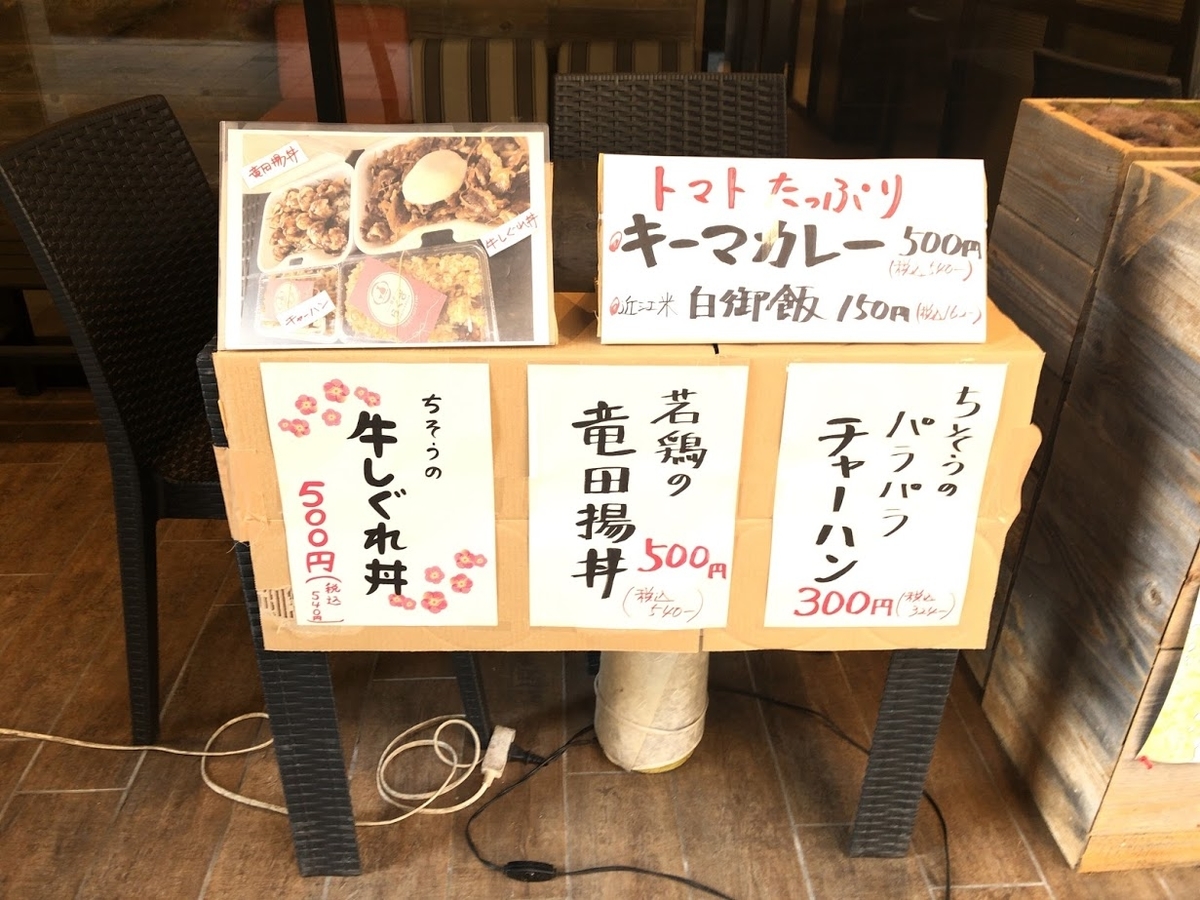 竜田揚丼
牛しぐれ丼
チャーハン
トマト たっぷり
キーマカレー 500円
(税込540-)
近江米 白御飯 150円(税込162-)
ちそうの
牛しぐれ丼
500円
(税込
540円)
若鶏の
竜田揚丼
500円
(税込
540-)
ちそうの
パラパラ
チャーハン
300円(税込
324-)